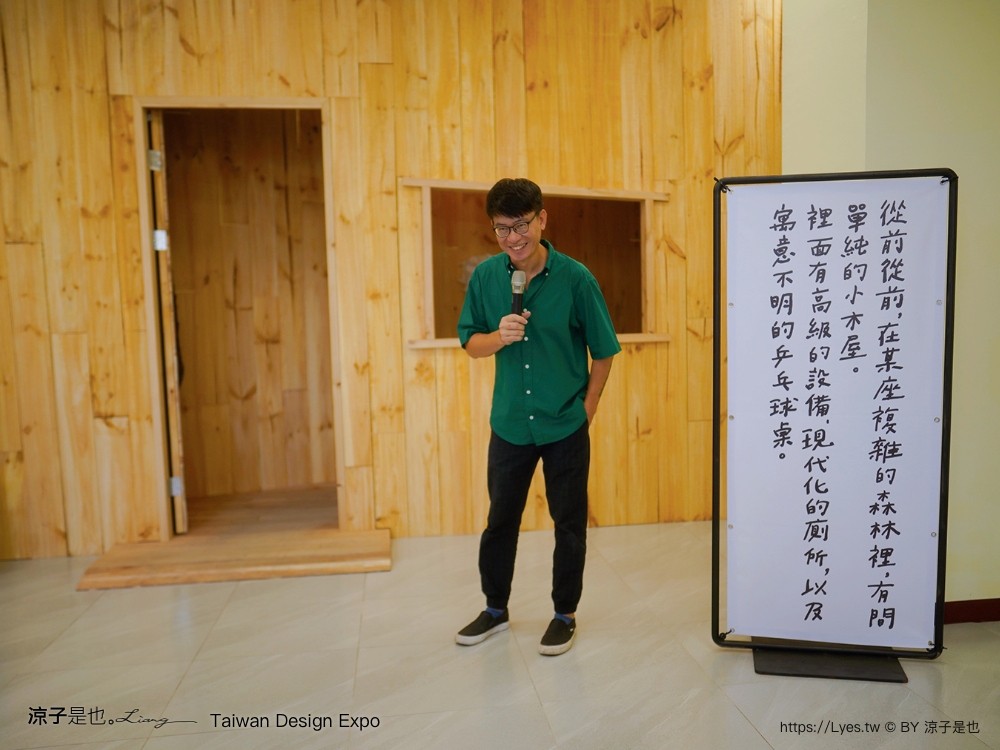 從前從前，在某座複雜的森林裡，有間
單純的小木屋。
裡面有高級的設備，現代化的廁所，以及
寓意不明的乒乓球桌。
涼子是也。Liang
Taiwan Design Expo
https://Lyes.tw © BY 涼子是也